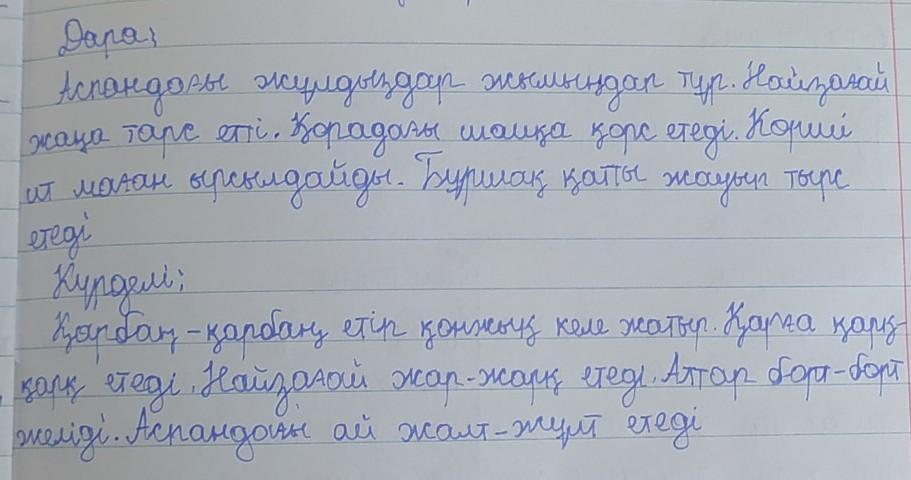 Дара;
Аспандағы жұлдыздар жымыңдап тұр. Найзағай
жаңа тарс етті. Қорадағы шошқа қорс етеді. Көрші
ит маған ырсылдайды. Бұршақ қатты жауып тырс
етеді
Күрделі:
Қорбаң-қорбаң етіп қонжық келе жатыр. Қарға қарқ-
қарқ етеді. Найзағай жар-жарқ етеді. Аттар борт-борт
желіді. Аспандағы ай жалт-жұлт етеді